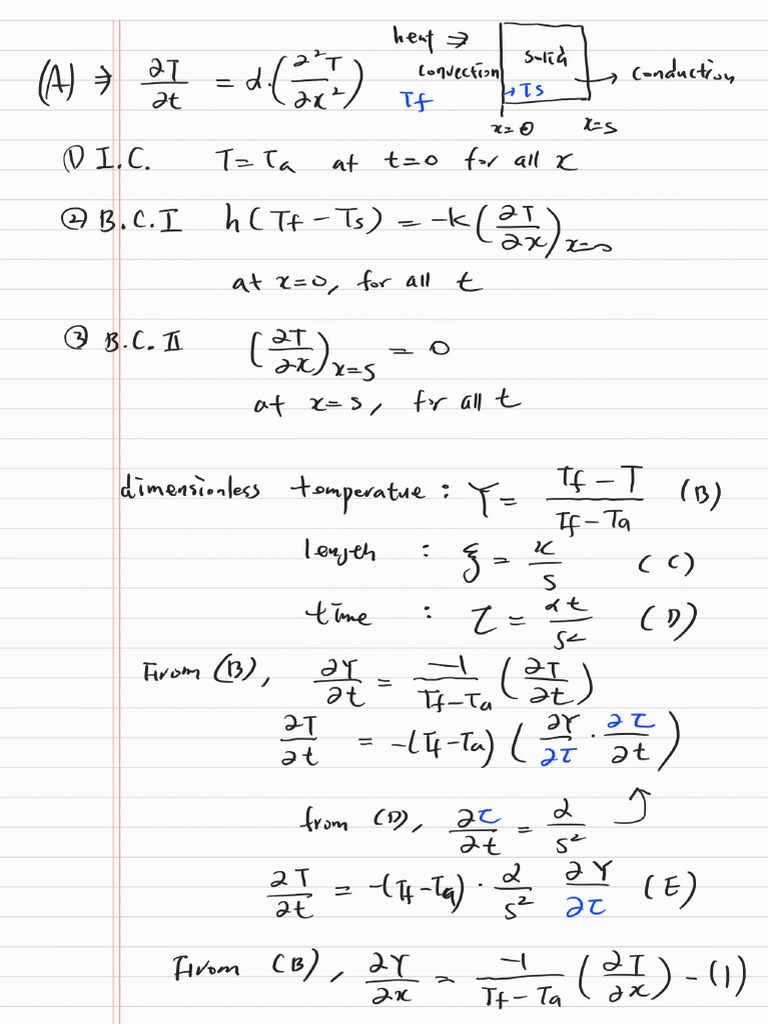 (A) ⇒ ∂T/∂t = α·(∂²T/∂x²)
heat ⇒
convection
Tf
solid
→ Ts
→ conduction
x=0
x=s
① I.C. T=Ta at t=0 for all x
② B.C.I h(Tf-Ts) = -k(∂T/∂x)x=0
at x=0, for all t
③ B.C.II (∂T/∂x)x=s = 0
at x=s, for all t
dimensionless temperature : Y = (Tf-T)/(Tf-Ta) (B)
length : ξ = x/s (C)
time : τ = αt/s² (D)
From (B), ∂Y/∂t = -1/(Tf-Ta) (∂T/∂t)
∂T/∂t = -(Tf-Ta) (∂Y/∂τ · ∂τ/∂t)
from (D), ∂τ/∂t = α/s²
∂T/∂t = -(Tf-Ta) · α/s² ∂Y/∂τ (E)
From (B), ∂Y/∂x = -1/(Tf-Ta) (∂T/∂x) - (1)